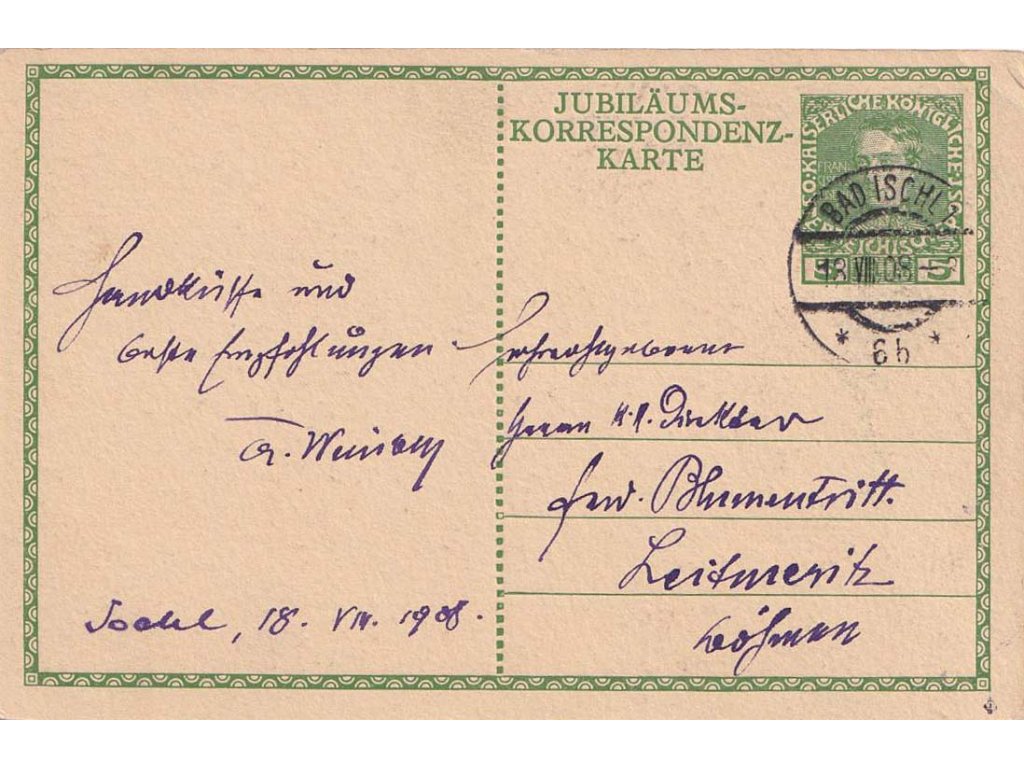 JUBILÄUMS-
KORRESPONDENZ-
KARTE
KAISERLICHE KÖNIGLICHE
FRAN
BAD ISCHL 2
18 VIII 08
* 6b *
Handküsse und
beste Empfehlungen
A.
Ischl, 18. VIII. 1908.
Hochwohlgeboren
Herrn k. k. Direktor
Ferd. Blumentritt.
Leitmeritz
Böhmen